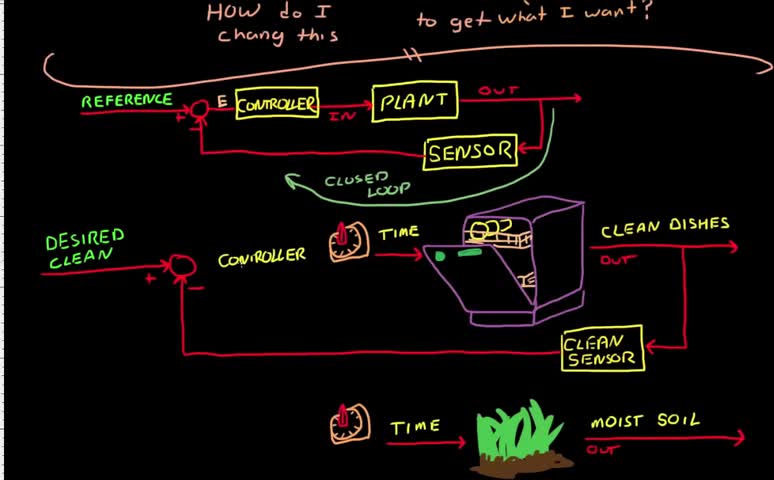 HOW do I to get what I want?
chang this
REFERENCE
+
-
E
CONTROLLER
IN
PLANT
OUT
SENSOR
CLOSED
LOOP
DESIRED
CLEAN
+
-
CONTROLLER
TIME
CLEAN DISHES
OUT
CLEAN
SENSOR
TIME
MOIST SOIL
OUT